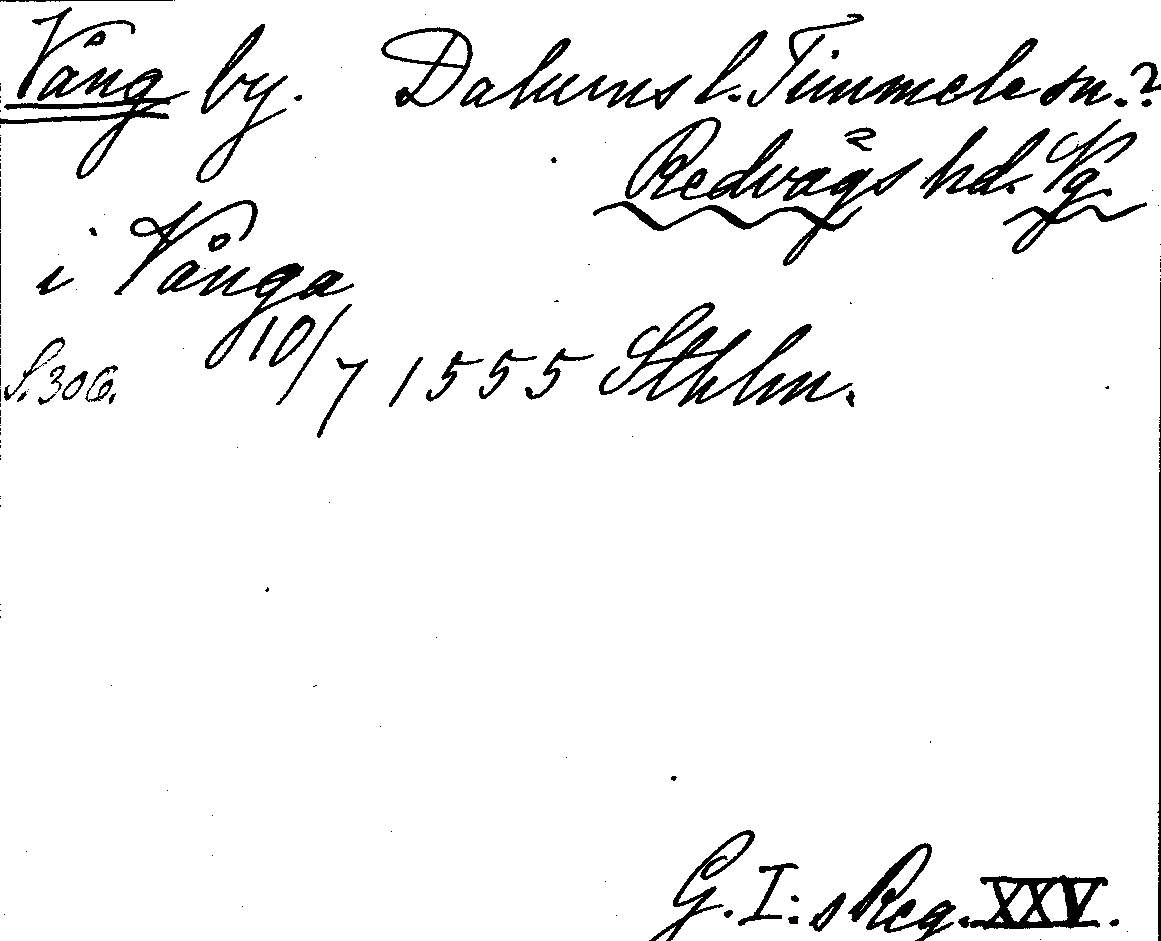 Vång by. Dalums l. Timmele sn.?
Redvägs hd. Vg.
i Vånga
10/7 1555 Sthlm.
S. 306.
G. I:s Reg. XXV.